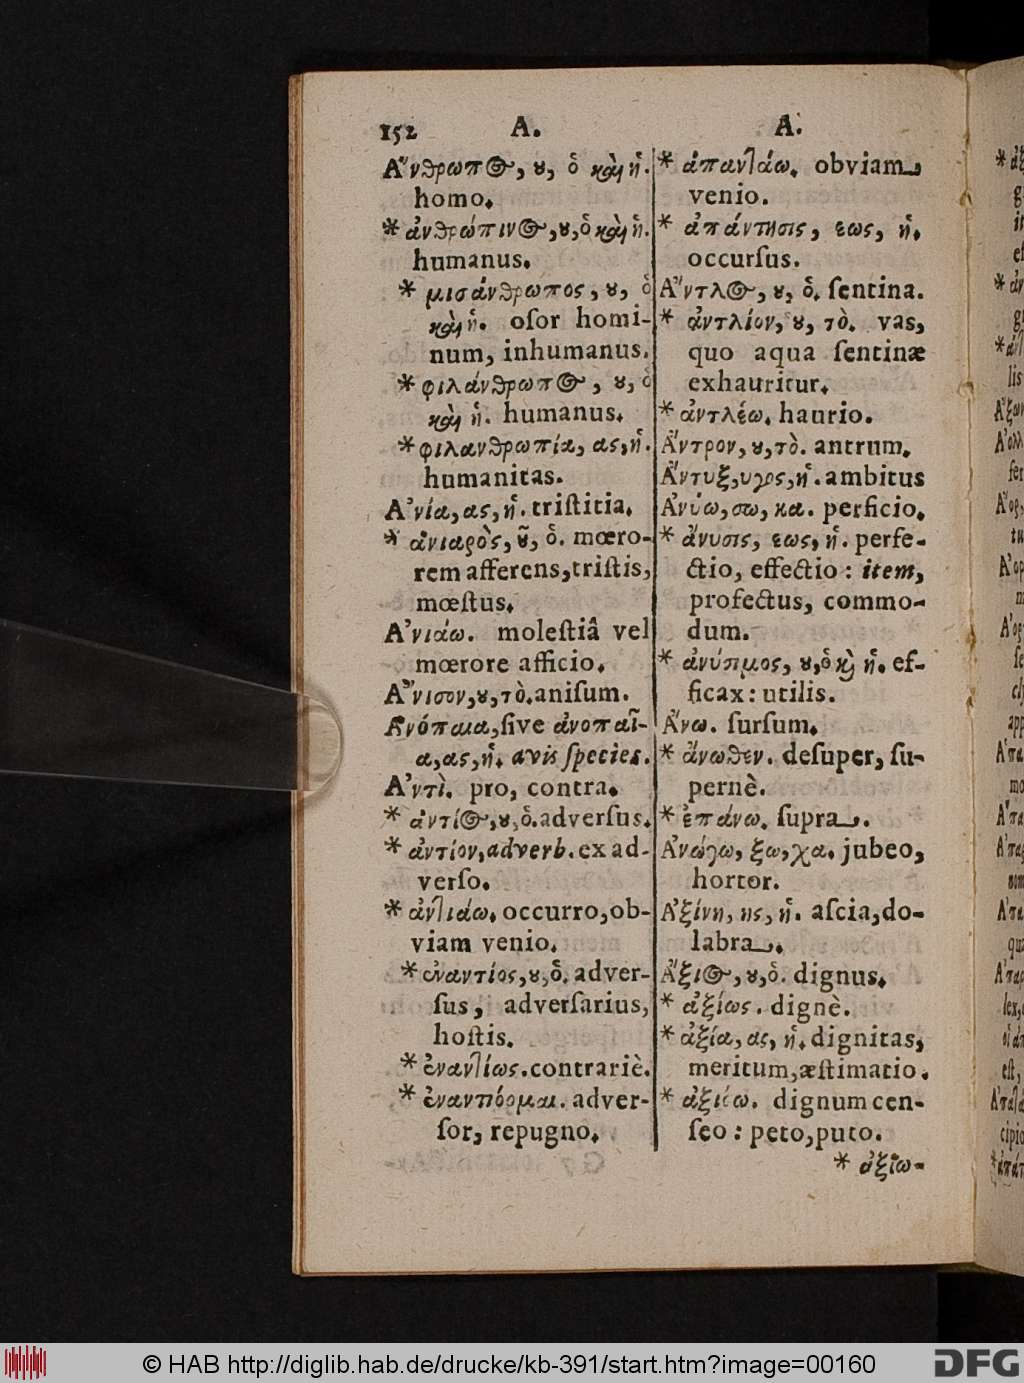 152 A. A.
Ἄνθρωπος, ου, ὁ καὶ ἡ.
homo.
* ἀνθρώπινος, ου, ὁ καὶ ἡ.
humanus.
* μισάνθρωπος, ου, ὁ
καὶ ἡ. oſor homi-
num, inhumanus.
* φιλάνθρωπος, ου, ὁ
καὶ ἡ. humanus.
* φιλανθρωπία, ας, ἡ.
humanitas.
Ἀνία, ας, ἡ. triſtitia.
* ἀνιαρὸς, οῦ, ὁ. mœro-
rem afferens, triſtis,
mœſtus.
Ἀνιάω. moleſtiâ vel
mœrore afficio.
Ἄνισον, ου, τὸ. aniſum.
Ἀνόπαια, ſive ἀνοπαῖ-
α, ας, ἡ. avis ſpecies.
Ἀντὶ. pro, contra.
* ἀντίος, ου, ὁ. adverſus.
* ἀντίον, adverb. ex ad-
verſo.
* ἀντιάω. occurro, ob-
viam venio.
* ἐναντίος, ου, ὁ. adver-
ſus, adverſarius,
hoſtis.
* ἐναντίως. contrariè.
* ἐναντιόομαι. adver-
ſor, repugno.
* ἀπαντάω. obviam
venio.
* ἀπάντησις, εως, ἡ.
occurſus.
Ἄντλος, ου, ὁ. ſentina.
* ἀντλίον, ου, τὸ. vas,
quo aqua ſentinæ
exhauritur.
* ἀντλέω. haurio.
Ἄντρον, ου, τὸ. antrum.
Ἄντυξ, υγος, ἡ. ambitus
Ἀνύω, σω, κα. perficio.
* ἄνυσις, εως, ἡ. perfe-
ctio, effectio: item,
profectus, commo-
dum.
* ἀνύσιμος, ου, ὁ καὶ ἡ. ef-
ficax: utilis.
Ἄνω. ſurſum.
* ἄνωθεν. deſuper, ſu-
pernè.
* ἐπάνω. ſupra.
Ἀνώγω, ξω, χα. jubeo,
hortor.
Ἀξίνη, ης, ἡ. aſcia, do-
labra.
Ἄξιος, ου, ὁ. dignus.
* ἀξίως. dignè.
* ἀξία, ας, ἡ. dignitas,
meritum, æſtimatio.
* ἀξιόω. dignum cen-
ſeo: peto, puto.
* ἀξίω-
© HAB http://diglib.hab.de/drucke/kb-391/start.htm?image=00160
DFG